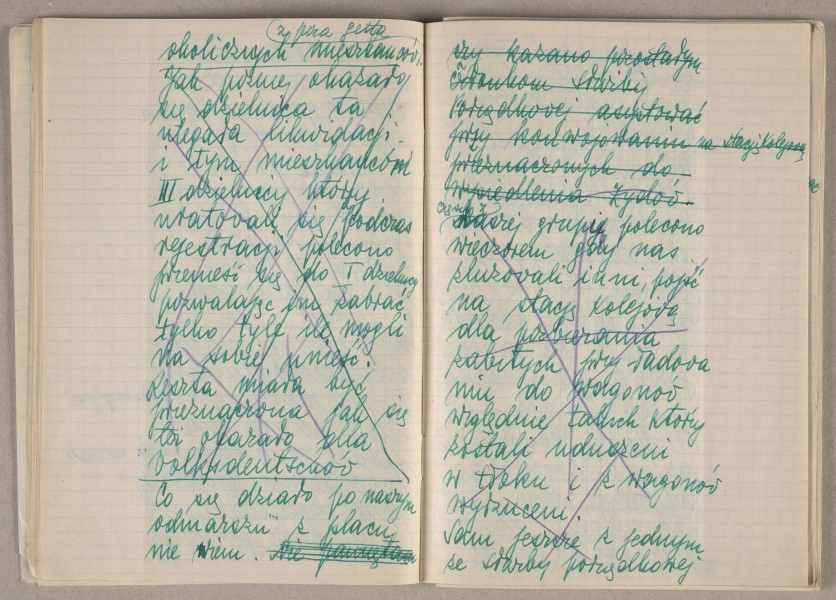 z poza getta
okolicznych mieszkańców).
Jak później okazało
się dzielnica ta
ulegała likwidacji
i tym mieszkańcom
III dzielnicy którzy
uratowali się podczas
rejestracji polecono
przenieść się do I dzielnicy
pozwalając im zabrać
tylko tyle ile mogli
na sobie unieść.
Reszta miała być
przeznaczona jak się
to okazało dla
Volksdeutschów
Co się działo po naszym
odmarszu z placu
nie wiem. nie pamiętam
czy kazano pozostałym
członkom służby
Porządkowej asystować
przy konwojowaniu na stację kolejową
przeznaczonych do
wysiedlenia żydów.
części z
naszej grupie polecono
wieczorem gdy nas
zluzowali inni, pójść
na stację kolejową
dla pozbierania
zabitych przy ładowa
niu do wagonów
względnie takich którzy
zostali uduszeni
w tłoku i z wagonów
wyrzuceni.
Sam jeszcze z jednym
ze służby porządkowej